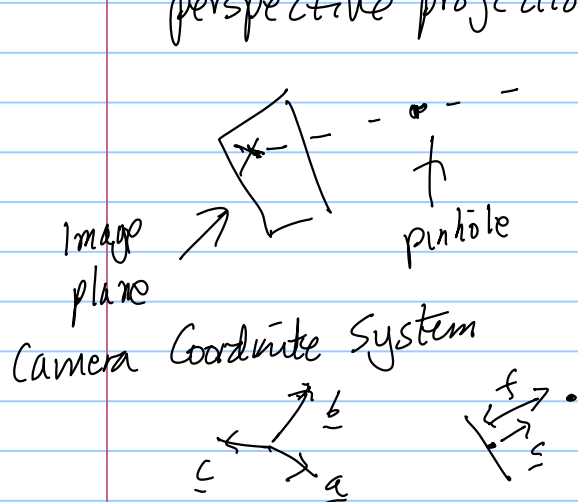 perspective projectio
Image
plane
pinhole
Camera Coordinate System
b
c
a
f
c